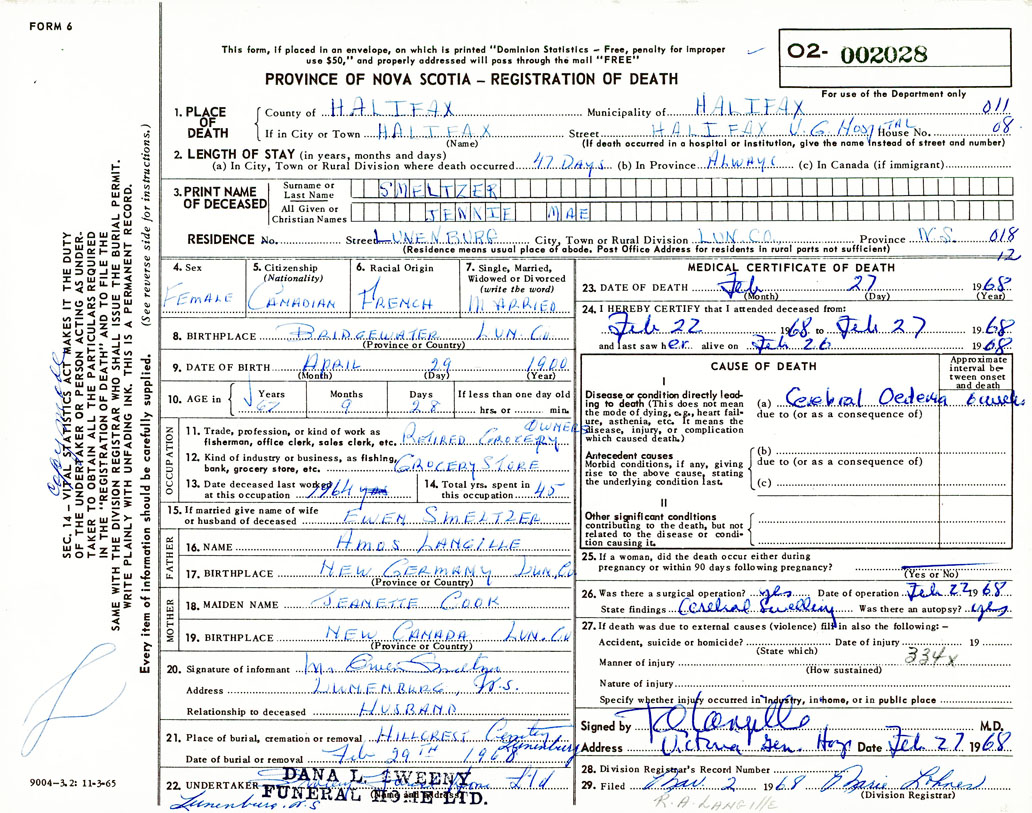 FORM 6
This form, if placed in an envelope, on which is printed "Dominion Statistics – Free, penalty for improper
use $50," and properly addressed will pass through the mail "FREE"
O2- 002028
PROVINCE OF NOVA SCOTIA – REGISTRATION OF DEATH
For use of the Department only
1. PLACE OF DEATH
County of HALIFAX Municipality of HALIFAX 011
If in City or Town HALIFAX Street HALIFAX V.G. HOSPITAL House No. 08
(Name) (If death occurred in a hospital or institution, give the name instead of street and number)
2. LENGTH OF STAY (in years, months and days)
(a) In City, Town or Rural Division where death occurred 47 DAYS (b) In Province ALWAYS (c) In Canada (if immigrant)
3. PRINT NAME OF DECEASED
Surname or Last Name SMELTZER
All Given or Christian Names JENNIE MAE
RESIDENCE No. Street LUNENBURG City, Town or Rural Division LUN. CO. Province N.S. 018
(Residence means usual place of abode. Post Office Address for residents in rural parts not sufficient) 12
4. Sex FEMALE
5. Citizenship (Nationality) CANADIAN
6. Racial Origin FRENCH
7. Single, Married, Widowed or Divorced (write the word) MARRIED
8. BIRTHPLACE BRIDGEWATER LUN. CO.
(Province or Country)
9. DATE OF BIRTH APRIL 29 1900
(Month) (Day) (Year)
10. AGE in Years 67 Months 9 Days 28 If less than one day old hrs. or min.
OCCUPATION
11. Trade, profession, or kind of work as fisherman, office clerk, sales clerk, etc. RETIRED GROCERY OWNER
12. Kind of industry or business, as fishing, bank, grocery store, etc. GROCERY STORE
13. Date deceased last worked at this occupation 1964
14. Total yrs. spent in this occupation 45
15. If married give name of wife or husband of deceased EWEN SMELTZER
FATHER
16. NAME AMOS LANGILLE
17. BIRTHPLACE NEW GERMANY LUN. CO
(Province or Country)
MOTHER
18. MAIDEN NAME JEANETTE COOK
19. BIRTHPLACE NEW CANADA LUN. CO
(Province or Country)
20. Signature of informant Mr. Owen Smeltzer
Address LUNENBURG, N.S.
Relationship to deceased HUSBAND
21. Place of burial, cremation or removal HILLCREST Cemetery Lunenburg
Date of burial or removal Feb 29TH 1968
22. UNDERTAKER DANA L. SWEENY FUNERAL HOME LTD. Ltd
(Name and address)
Lunenburg, N.S
MEDICAL CERTIFICATE OF DEATH
23. DATE OF DEATH Feb 27 1968
(Month) (Day) (Year)
24. I HEREBY CERTIFY that I attended deceased from:
Feb 22 1968 to Feb 27 1968
and last saw her alive on Feb 26 1968
CAUSE OF DEATH
Approximate interval between onset and death
I
Disease or condition directly leading to death (This does not mean the mode of dying, e.g., heart failure, asthenia, etc. It means the disease, injury, or complication which caused death.)
(a) Cerebral Oedema
due to (or as a consequence of)
Antecedent causes
Morbid conditions, if any, giving rise to the above cause, stating the underlying condition last.
(b)
due to (or as a consequence of)
(c)
II
Other significant conditions
contributing to the death, but not related to the disease or condition causing it.
25. If a woman, did the death occur either during pregnancy or within 90 days following pregnancy?
(Yes or No)
26. Was there a surgical operation? yes Date of operation Feb 22 1968
State findings Cerebral Swelling Was there an autopsy? yes
27. If death was due to external causes (violence) fill in also the following: –
Accident, suicide or homicide? Date of injury 19
(State which) 334x
Manner of injury
(How sustained)
Nature of injury
Specify whether injury occurred in industry, in home, or in public place
Signed by M.D.
Address Victoria Gen. Hosp Date Feb 27 1968
28. Division Registrar's Record Number
29. Filed Mar 2 1968 Marie Lohnes
(Division Registrar)
R.A. LANGILLE
SEC. 14 – VITAL STATISTICS ACT MAKES IT THE DUTY
OF THE UNDERTAKER OR PERSON ACTING AS UNDER-
TAKER TO OBTAIN ALL THE PARTICULARS REQUIRED
IN THE "REGISTRATION OF DEATH" AND TO FILE THE
SAME WITH THE DIVISION REGISTRAR WHO SHALL ISSUE THE BURIAL PERMIT.
WRITE PLAINLY WITH UNFADING INK. THIS IS A PERMANENT RECORD.
Every item of information should be carefully supplied. (See reverse side for instructions.)
9004–3.2: 11-3-65